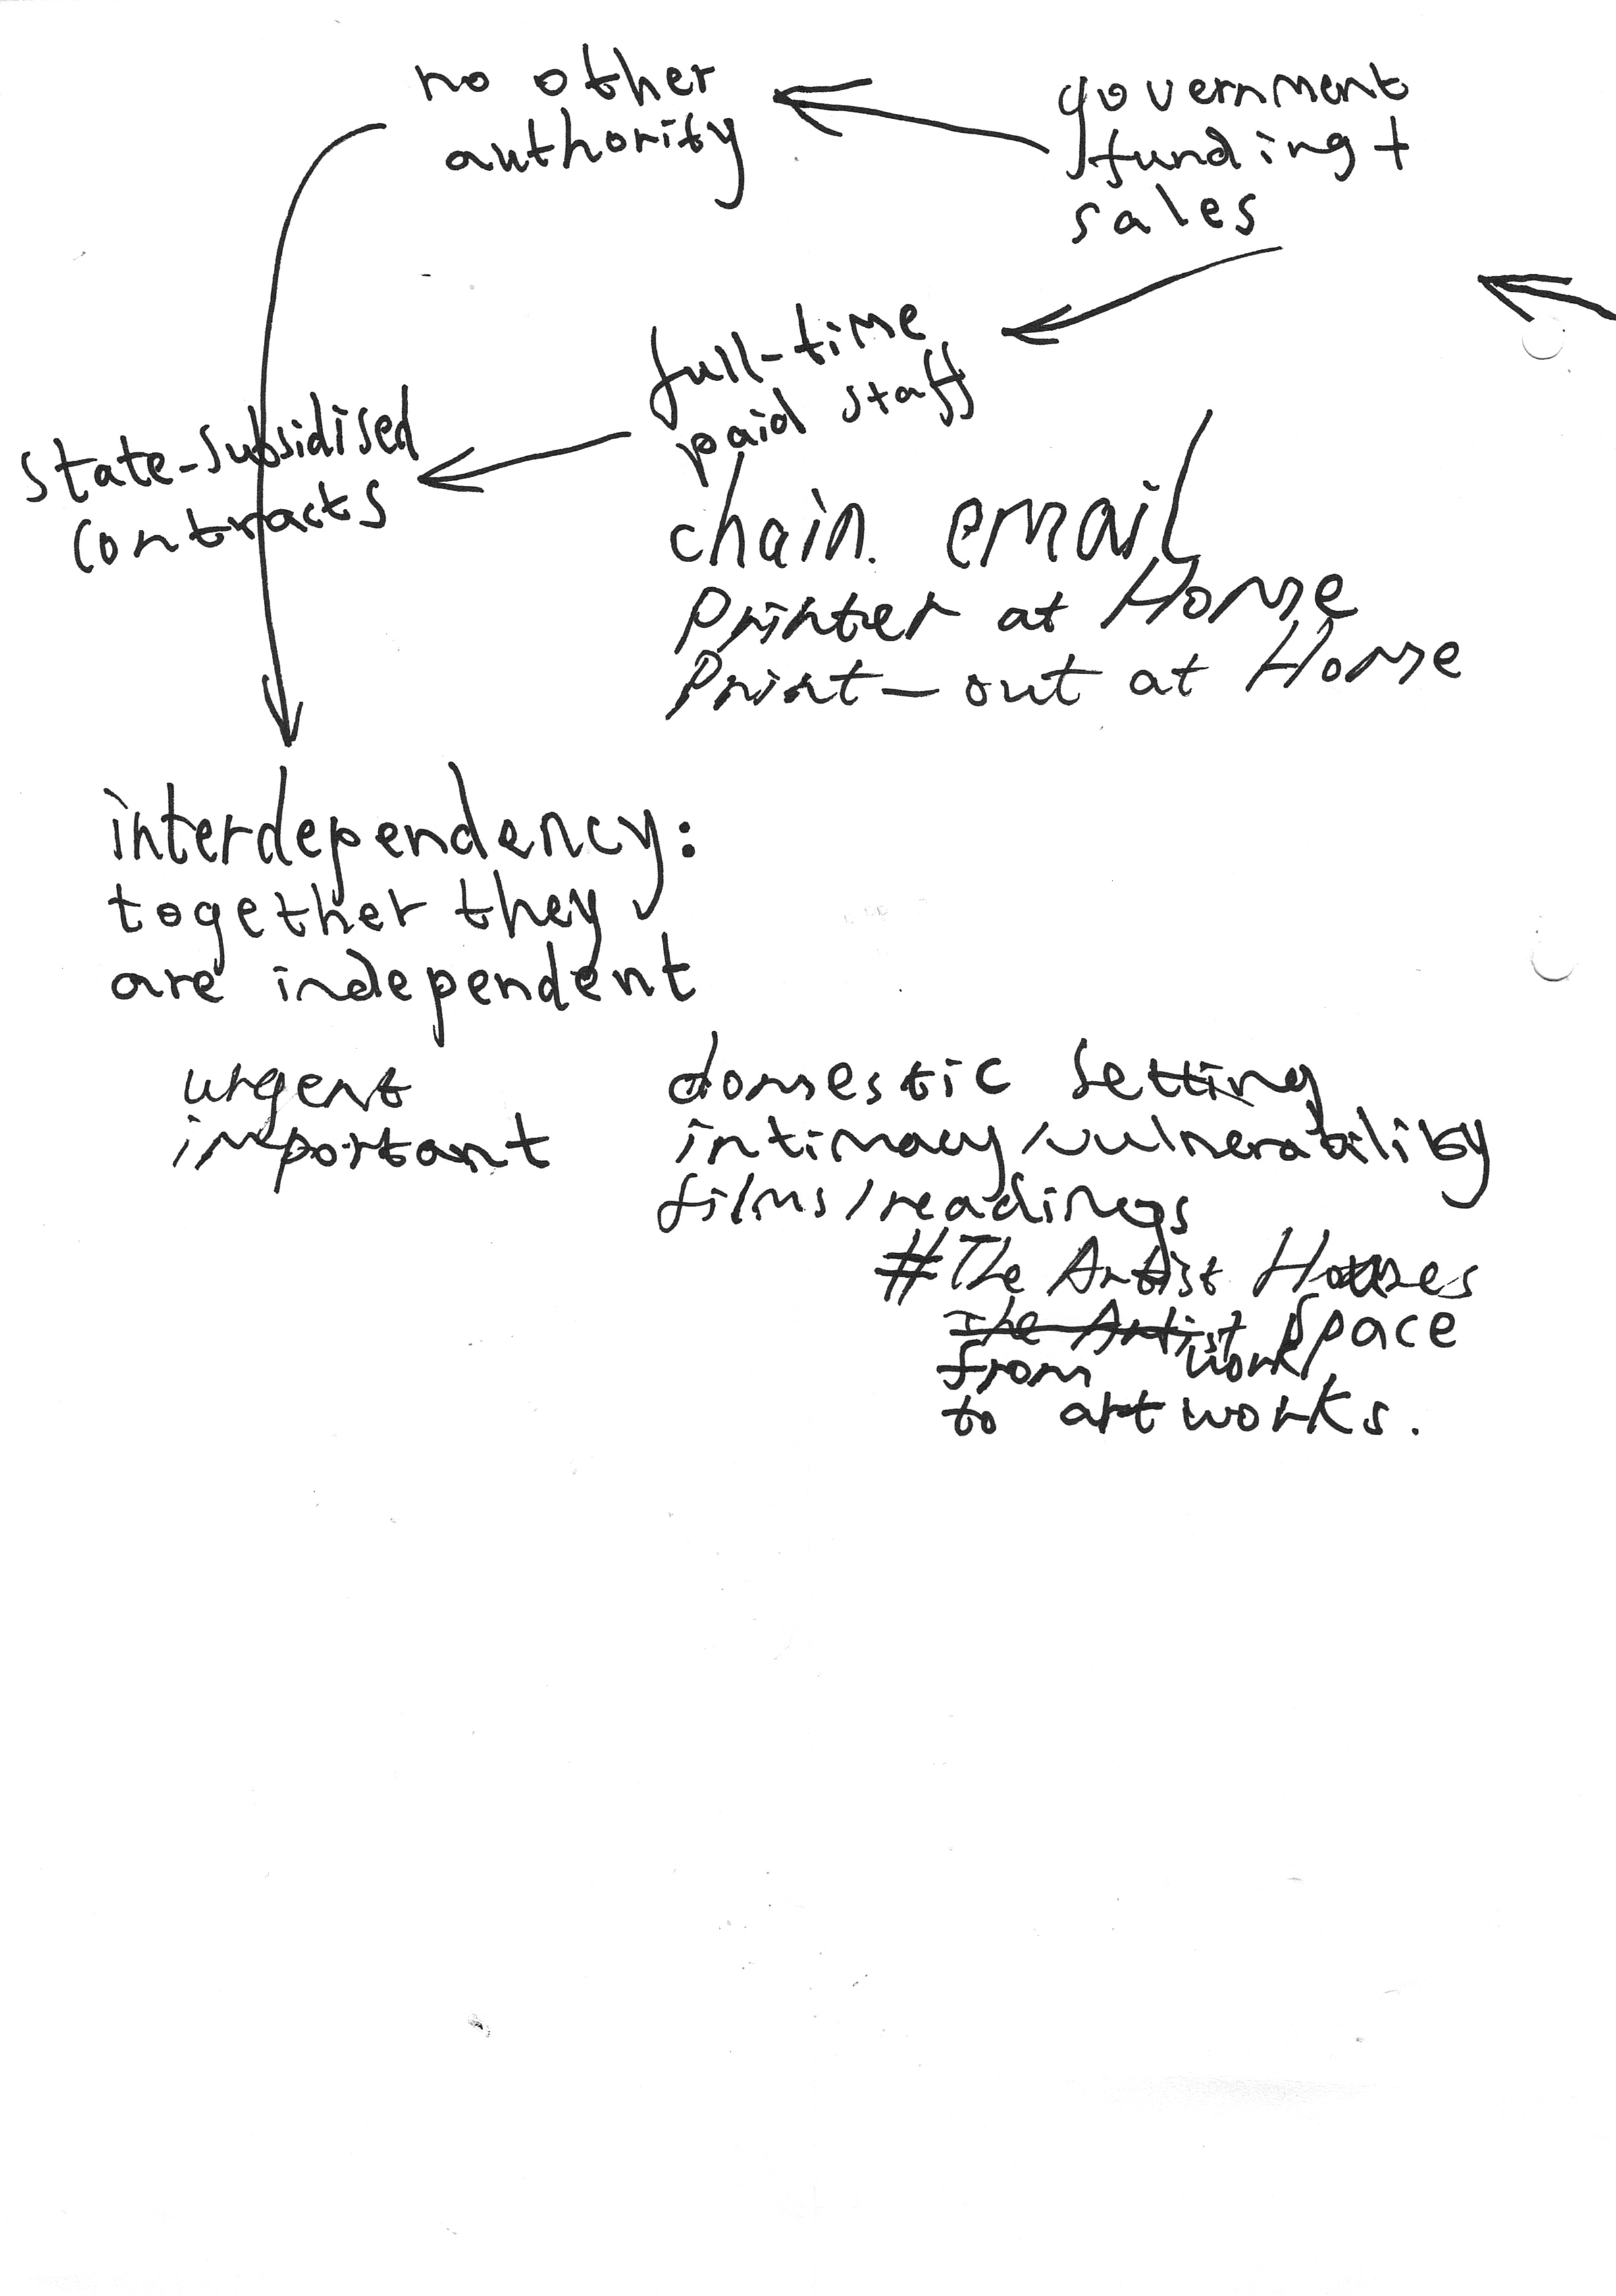 no other
authority
government
funding +
sales
full-time
paid staff
state-subsidised
contracts
chain email
Printer at Home
Print-out at Home
interdependency:
together they
are independent
urgent
important
domestic setting
intimacy/vulnerability
films/readings
#The Artist Houses
The Artist Space
from work
to artworks.